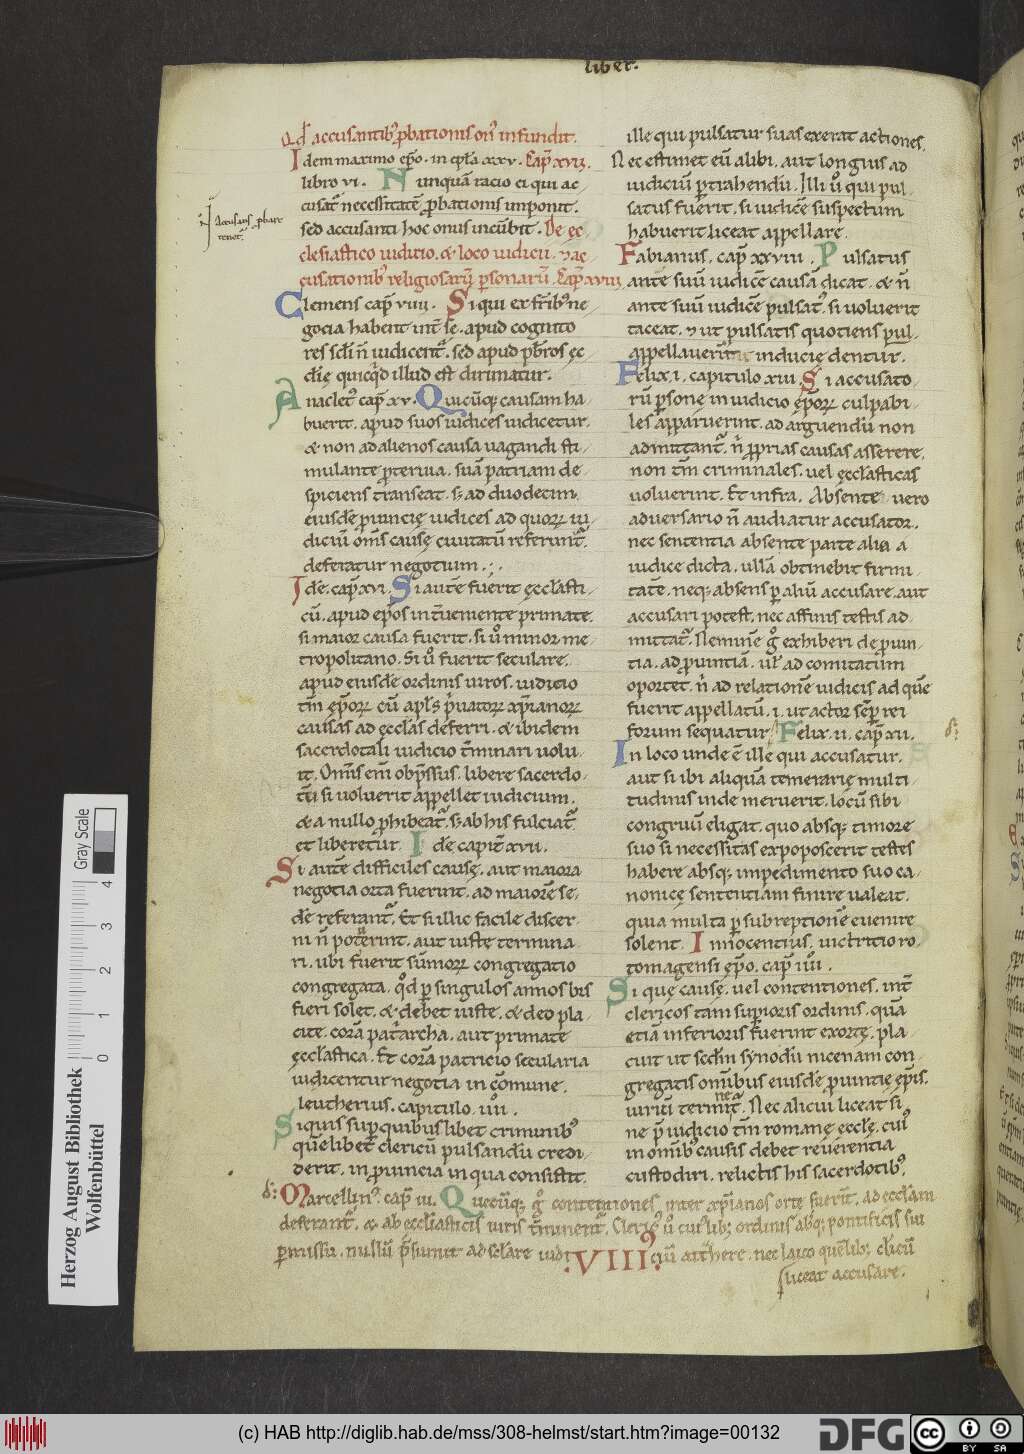 liber.
Qđ accusantibꝰ ꝓbationis onꝰ infundit.
Idem maximo ep̄o. in ep̄la xxxv. Cap̄ XVII.
libro vi. Nunquā racio ei qui ac-
cusat᷑ necessitatē ꝓbationis imponit.
sed accusanti hoc onus incūbit. De ęc-
clesiastico iuditio. & loco iudicii. ⁊ ac-
cusationibꝰ religiosarū ꝑsonarū. Cap̄ XVIII.
Clemens cap̄ viiii. Si qui ex fr̄ibꝰ ne-
gocia habent int̄ se. apud cognito
res scl̄i n̄ iudicent᷑. sed apud pb̄ros ęc-
clīę quicq̇d illud est dirimatur.
Anaclet᷒ cap̄ xv. Quicūq; causam ha-
buerit. apud suos iudices iudicetur.
& non ad alienos causa uagandi sti-
mulante ꝓterua. suā patriam de-
spiciens transeat. s; ad duodecim
eiusdē ꝓuincię iudices ad quorꝝ iu-
diciū om̄s causę ciuitatū referunt᷑.
deferatur negotium.
Idē. cap̄ xvi. Si autē fuerit ęcclasti-
cū. apud ep̄os int̄ueniente primate.
si maior causa fuerit. si u̇̊ minor me-
tropolitano. Si u̇̊ fuerit seculare.
apud eiusdē ordinis uiros. iuditio
tm̄ ep̄orꝝ. cū apl̄s p̄uatorꝝ xp̄ianorꝝ
causas ad ęccl̄as deferri. & ibidem
sacerdotali iudicio t̄minari uolu-
it. Om̄is eni obp̄ssus. libere sacerdo-
tū si uoluerit appellet iudicium.
& a nullo ꝓhibeat᷑. s; ab his fulciat᷑
et liberetur. Idē capitē xvii.
Si autē difficiles causę. aut maiora
negotia orta fuerint. ad maiorē se-
dē referant᷑. Et si illic facile discer-
ni n̄ poterint. aut iuste termina-
ri. ubi fuerit sūmorꝝ congregatio
congregata. q̇d ꝑ singulos annos bis
fieri solet. & debet iuste. & deo pla-
cite. corā pat̄archa. aut primate
ęccl̄astica. Et corā patricio secularia
iudicentur negotia in cōmune.
Leutherius. capitulo. iiii.
Siquis suꝑ quibuslibet criminibꝰ
quēlibet clericū pulsandū credi-
derit. in ꝓuincia in qua consistit
ille qui pulsatur suas exerat actiones.
Nec estimet eū alibi. aut longius ad
iudiciū ꝑtrahendū. Illi u̇̊ qui pul-
satus fuerit. si iudicē suspectum
habuerit liceat appellare.
Fabianus. cap̄ xxviii. Pulsatus
ante suū iudicē causā dicat. & n̄
ante suū iudicē pulsat᷒. si uoluerit
taceat. ⁊ ut pulsatis quotiens pul-
appellauerit inducię dentur.
Felix. i. capitulo xiii. Si accusato-
rū ꝑsonę in iudicio ep̄orꝝ culpabi-
les apparuerint. ad arguendū non
admittant᷑. n̄ ꝓprias causas asserere.
non tm̄ criminales. uel ęcclasticas
uoluerint. Et infra. Absente uero
aduersario n̄ audiatur accusator.
nec sententia absente parte alia a
iudice dicta. ullā obtinebit firmi-
tatē. neq; absens ꝑ aliū accusare. aut
accusari potest. nec affinis testis ad-
mittat᷑. Neminē g̊ exhiberi de ꝓuin-
tia. ad ꝓuintiā. ul̄ ad comitatum
oportet. n̄ ad relationē iudicis ad quē
fuerit appellatū. i. ut actor semꝑ rei
forum sequatur. Felix. ii. cap̄ xii.
In loco unde ē ille qui accusatur.
aut si ibi aliquā temerarię multi-
tudinis inde meruerit. locū sibi
congruū eligat. quo absq; timore
suo si necessitas expoposcerit testes
habere absq; impedimento suo ca-
nonicę sententiam finire ualeat.
quia multa ꝑ subreptionē euenire
solent. Innocentius. uictritio ro-
tomagensi ep̄o. cap̄ iiii.
Si quę causę. uel contentiones. int̄
clericos tam suꝑioris ordinis. quā
etiā inferioris fuerint exortę. pla-
cuit ut scdm̄ synodū nicenam con-
gregatis omībus eiusdē ꝓuintię ep̄is.
iurium terminet᷑. Nec alicui liceat si-
ne p̄iudicio tm̄ romanę ęccl̄ę. cui᷒
in omībꝰ causis debet reuerentia
custodiri. relictis his sacerdotibꝰ.
Marcellin᷒. cap̄ iii. Quecūq; g̊ contentiones inter xp̄ianos ortę fuerint. ad ęccl̄am
deferant᷑. & ab ęccl̄iasticis uiris t̄minent᷑. Cleric᷒ u̇̊ cui᷒lib; ordinis absq; pontificis sui
ꝑmissu. nullū p̄sumat ad sc̄lare iudiciū att᷑here. nec laico quēlib; cl̄icū
liceat accusare.
VIIII᷒
N accusans ꝓbare
tenet᷑.
Gray Scale
0 1 2 3 4
Herzog August Bibliothek
Wolfenbüttel
(c) HAB http://diglib.hab.de/mss/308-helmst/start.htm?image=00132
DFG
cc BY SA